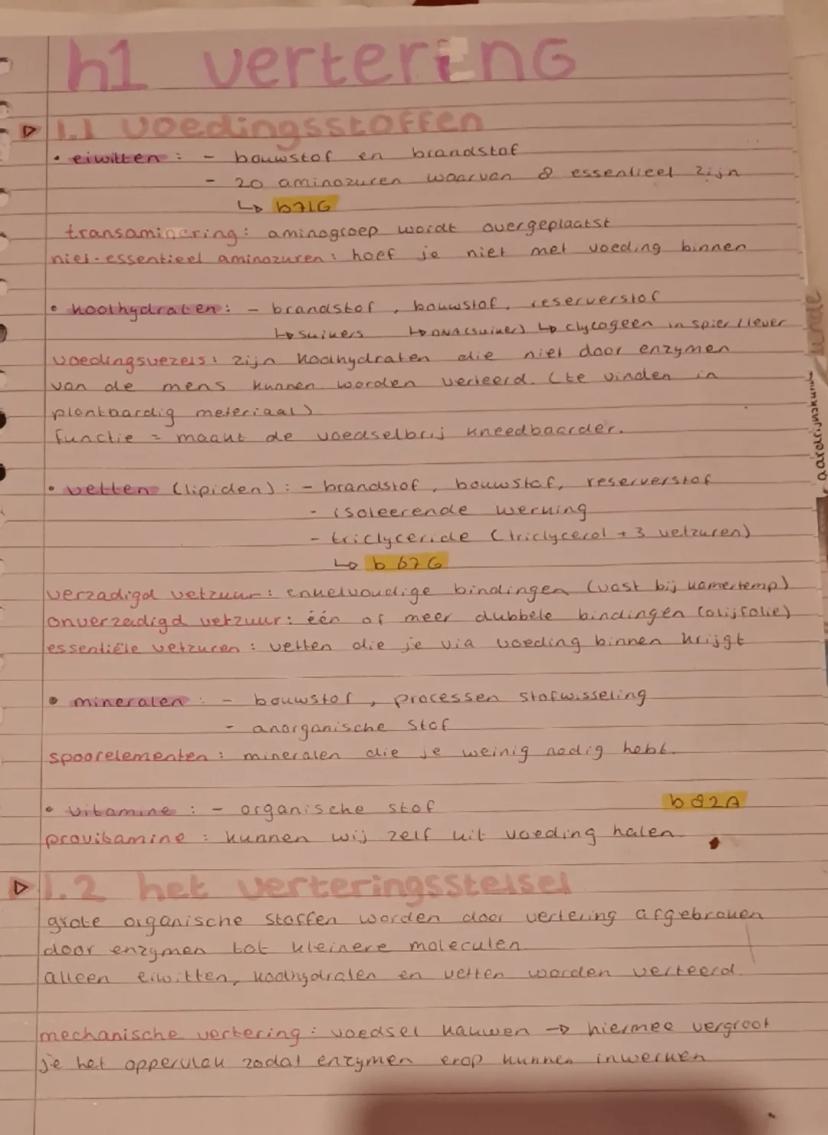 h1 vertering
1.1 voedingsstoffen
• eiwitten : - bouwstof en brandstof
- 20 aminozuren waarvan 8 essentieel zijn
↳ b71G
transaminering: aminogroep wordt overgeplaatst
niet-essentieel aminozuren: hoef je niet met voeding binnen
• koolhydraten: - brandstof, bouwstof, reserverstof
↳ suikers ↳ ↳ clycogeen in spier/lever
voedingsvezels: zijn koolhydraten die niet door enzymen
van de mens kunnen worden verteerd. (te vinden in
plantaardig meteriaal)
functie = maakt de voedselbrij kneedbaarder.
• vetten (lipiden) : - brandstof, bouwstof, reserverstof
- isoleerende werking
- triclyceride (triclycerol + 3 vetzuren)
↳ b 67G
verzadigd vetzuur: enkelvoudige bindingen (vast bij kamertemp)
onverzadigd vetzuur: één of meer dubbele bindingen (olijfolie)
essentiële vetzuren : vetten die je via voeding binnen krijgt
• mineralen : - bouwstof, processen stofwisseling
- anorganische stof
spoorelementen : mineralen die je weinig nodig hebt.
• vitamine : - organische stof b 82A
provitamine : kunnen wij zelf uit voeding halen
1.2 het verteringsstelsel
grote organische stoffen worden door vertering afgebroken
door enzymen tot kleinere moleculen
alleen eiwitten, koolhydraten en vetten worden verteerd
mechanische vertering : voedsel kauwen → hiermee vergroot
je het oppervlak zodat enzymen erop kunnen inwerken
aardrijkskunde